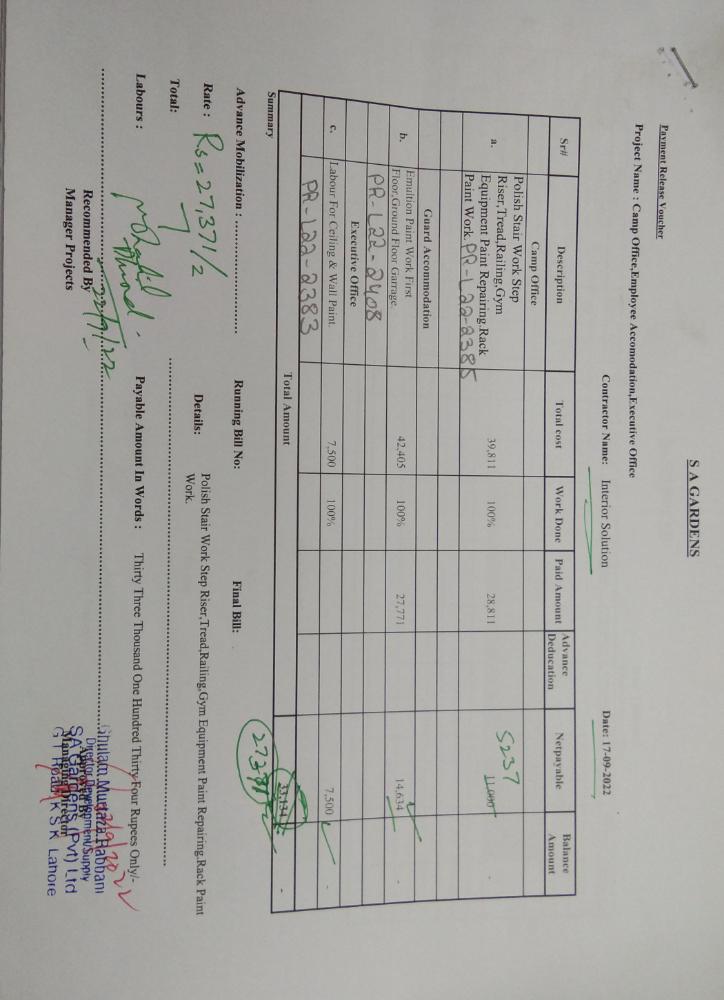 S A GARDENS
Payment Release Voucher
Project Name : Camp Office,Employee Accomodation,Executive Office
Contractor Name: Interior Solution Date: 17-09-2022
Sr# Description Total cost Work Done Paid Amount Advance Deducation Netpayable Balance Amount
Camp Office
a. Polish Stair Work Step Riser,Tread,Railing,Gym Equipment Paint Repairing,Rack Paint Work. PR-L22-2385 39,811 100% 28,811 5237 11,000
Guard Accommodation
b. Emultion Paint Work First Floor,Ground Floor Garrage. 42,405 100% 27,771 14,634 -
PR-L22-2408
Executive Office
c. Labour For Ceiling & Wall Paint. 7,500 100% 7,500 -
PR-L22-2383
Total Amount 33,134 -
27371/2
Summary
Advance Mobilization : .......................... Running Bill No: Final Bill:
Rate : Rs=27,371/2 Details: Polish Stair Work Step Riser,Tread,Railing,Gym Equipment Paint Repairing,Rack Paint
Work.
Total:
Labours : Payable Amount In Words : Thirty Three Thousand One Hundred Thirty Four Rupees Only/-
22/9/22
Recommended By
Manager Projects
Ghulam Murtaza Rabbani
Director Development/Supply
Approved By
SA Gardens (Pvt) Ltd
Managing Director
G T Road K S K Lahore